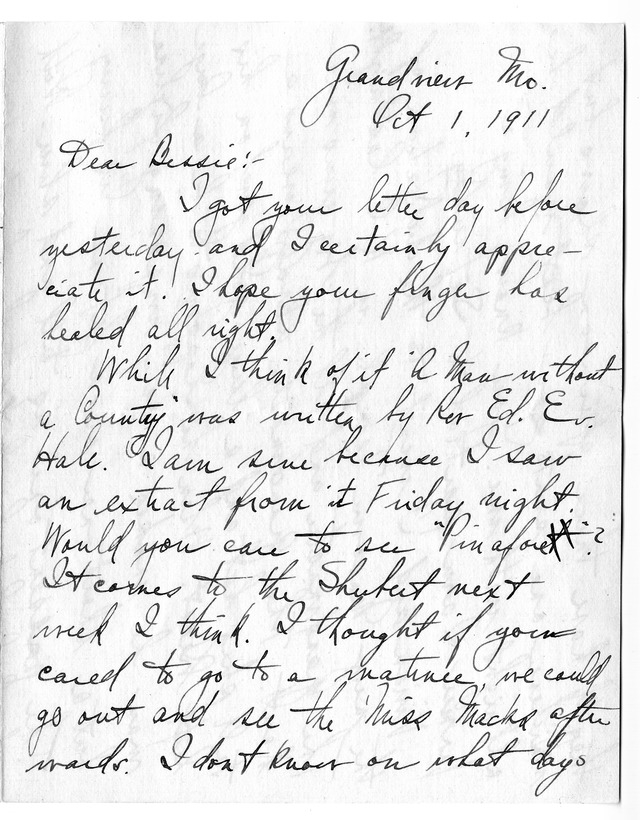 Grandview Mo.
Oct 1, 1911
Dear Bessie:-
I got your letter day before
yesterday and I certainly appre-
ciate it. I hope your finger has
healed all right.
While I think of it "A Man without
a Country" was written by Rev Ed. Ev.
Hale. I am sure because I saw
an extract from it Friday night.
Would you care to see "Pinafore"?
It comes to the Shubert next
week I think. I thought if you
cared to go to a matinee, we could
go out and see the Miss Macks after
wards. I don't know on what days